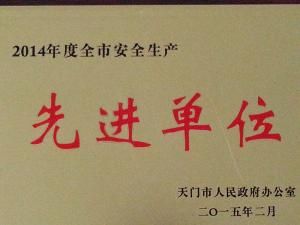 2014年度全市安全生产
先进单位
天门市人民政府办公室
二〇一五年二月